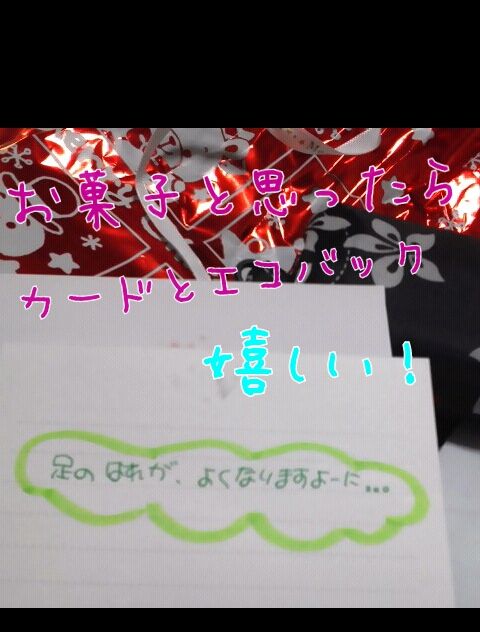 お菓子と思ったら
カードとエコバック
嬉しい！
足のはれが、よくなりますよーに…